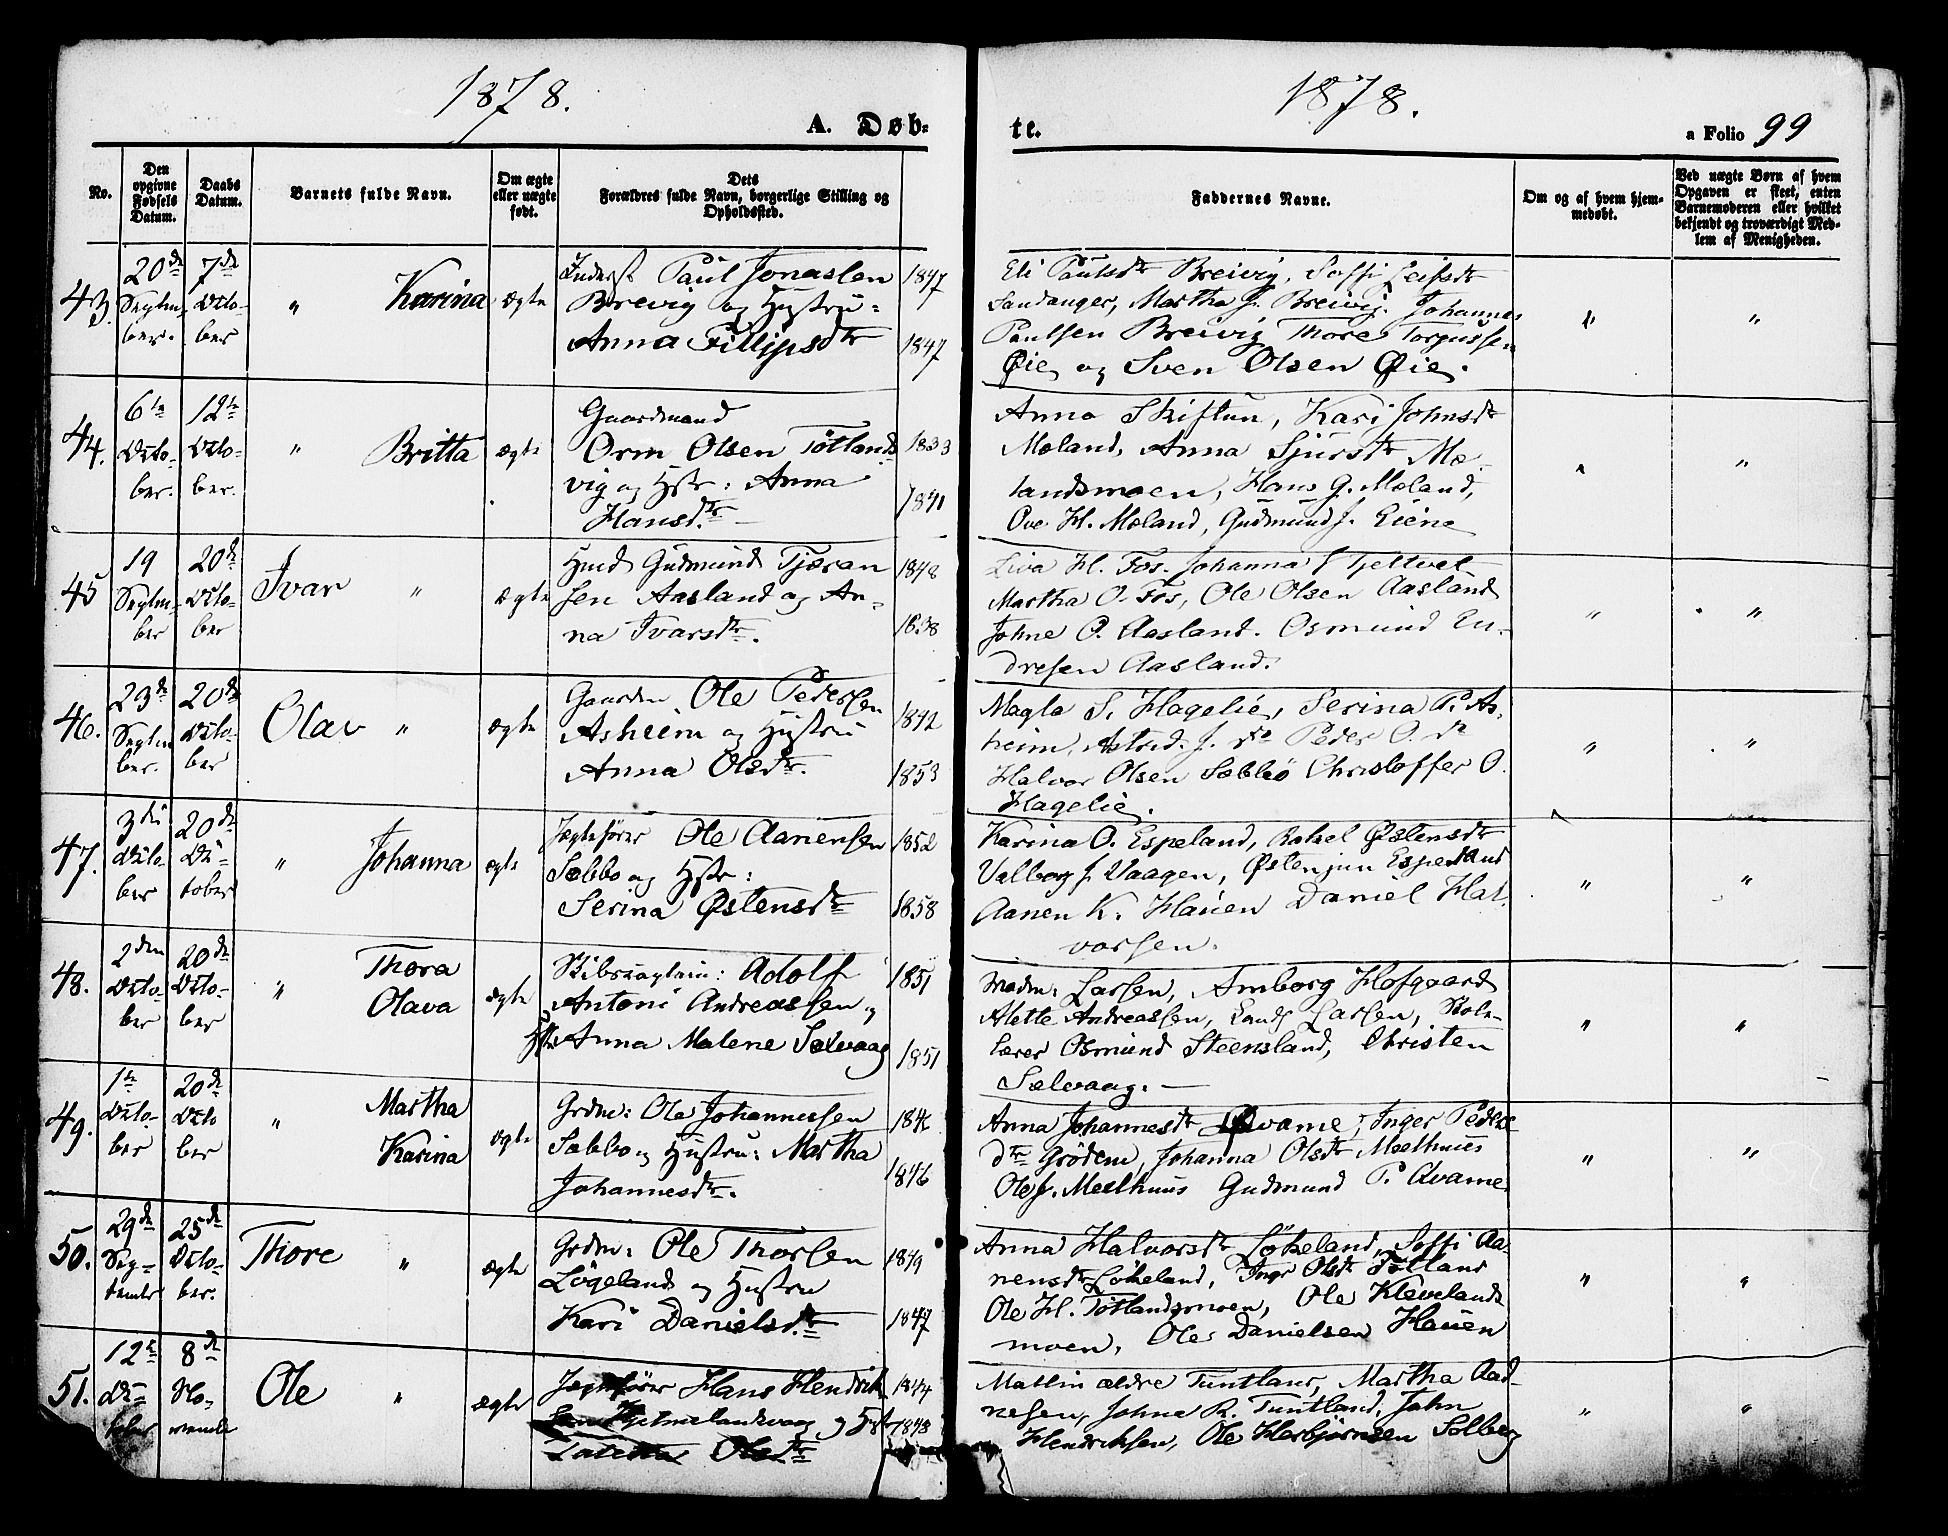 1878.
A. Døb-
No.
Den opgivne Fødsels Datum.
Daabs Datum.
Barnets fulde Navn.
Om ægte eller uægte født.
Dets Forældres fulde Navn, borgerlige Stilling og Opholdssted.
1878.
te.
a Folio 99
Faddernes Navne.
Om og af hvem hjem-
medøbt.
Ved uægte Børn af hvem
Opgaven er skeet, enten
Barnemoderen eller hvilket
bekjendt og troværdigt Med-
lem af Menigheden.
43. 20de Septem- ber. 7de Octo- ber " Karina ægte
Paul Jonassen 1847
Brevig og Hustru:
Anna Fillipsdtr 1847
Eli Paulsdtr Breivig, Soffi Leifsdtr
Sandanger, Martha J. Breivig. Johannes
Paulsen Breivig Thore Torgussen
Øie, og Sven Olsen Øie. " "
44. 6te Octo- ber. 12te Octo- ber. " Britta ægte
Gaardmand
Orm Olsen Tøtlands- 1833
vig og Hstr: Anna
Hansd.tr 1841
Anna Skiftun, Kari Johnsdtr
Mæland, Anna Sjursdtr Mæ-
landsmoen, Hans G. Mæland,
Ove H. Mæland, Gudmund J. Eiene " "
45 19 Septem- ber 20de Octo- ber Ivar " ægte
Hmd Gudmund Tjæran 1848
sen Aasland og An-
na Ivarsdtr. 1838
Liva H. Fos. Johanna Tjeltvet
Martha O. Fos, Ole Olsen Aasland
Johne O. Aasland. Osmund En-
dresen Aasland. " "
46. 23de Septem ber. 20de Octo- ber Olav " ægte
Gaardm. Ole Pedersen
Asheim og Hustru 1842
Anna Olsdtr. 1853
Magla S. Hagelie, Serina P. As-
heim, Astrid. J. do Peder O. do
Halvor Olsen Sæbbø Christoffer O.
Hagelie. " "
47. 3die Octo- ber 20de Oc- tober " Johanna ægte
Jægtefører Ole Aanensen 1852
Sæbbo og Hstr:
Serina Østensdtr 1858
Karina O. Espeland, Rakel Østensdtr
Valborg J. Vaagen, Østen jun Espeland
Aanen K. Hauen Daniel Hal-
vorsen. " "
48. 2den Octo- ber 20de Octo- ber " Thora Olava ægte
Skibscaptain: Adolf 1851
Antoni Andreassen og
Hstr Anna Malene Sælvaag 1851
Madm: Larsen, Amborg Hofgaard
Alette Andreassen, Larsen, Skole-
lærer Osmund Steensland, Christen
Sælvaag. — " "
49. 1te Octo- ber 20de Octo ber " Martha Karina ægte
Grdm: Ole Johannessen
Sæbbo og Hustru: Martha 1846
Johannesdtr.
Anna Johannesdtr Qvame, Inger Peders
dtr Grødem, Johanna Olsdtr Meelhuus
Ole J. Meelhuus Gudmund P. Qvame " "
50. 29de Sep- tember 25de Octo- ber. Thore " ægte
Grdm: Ole Thorsen 1849
Løgeland og Hustru
Kari Danielsd.tr 1847
Anna Halvorsdtr Løkeland, Soffi Aa-
nensdtr Løkeland, Inger Olsdtr Tøtland
Ole H. Tøtlandsmoen, Ole Klevelands
moen, Ole Danielsen Hauen " "
51. 12te Oc- tober 8de No- vember Ole " ægte
Jægtefører Hans Hendrik 1844
sen Hjelmelandsvaag og 1848
Olsdtr
Mallin ældre Tuntland, Martha Aad-
nesen, Johna R. Tuntland, John
Hendriksen, Ole Herbjørnsen Solberg " "